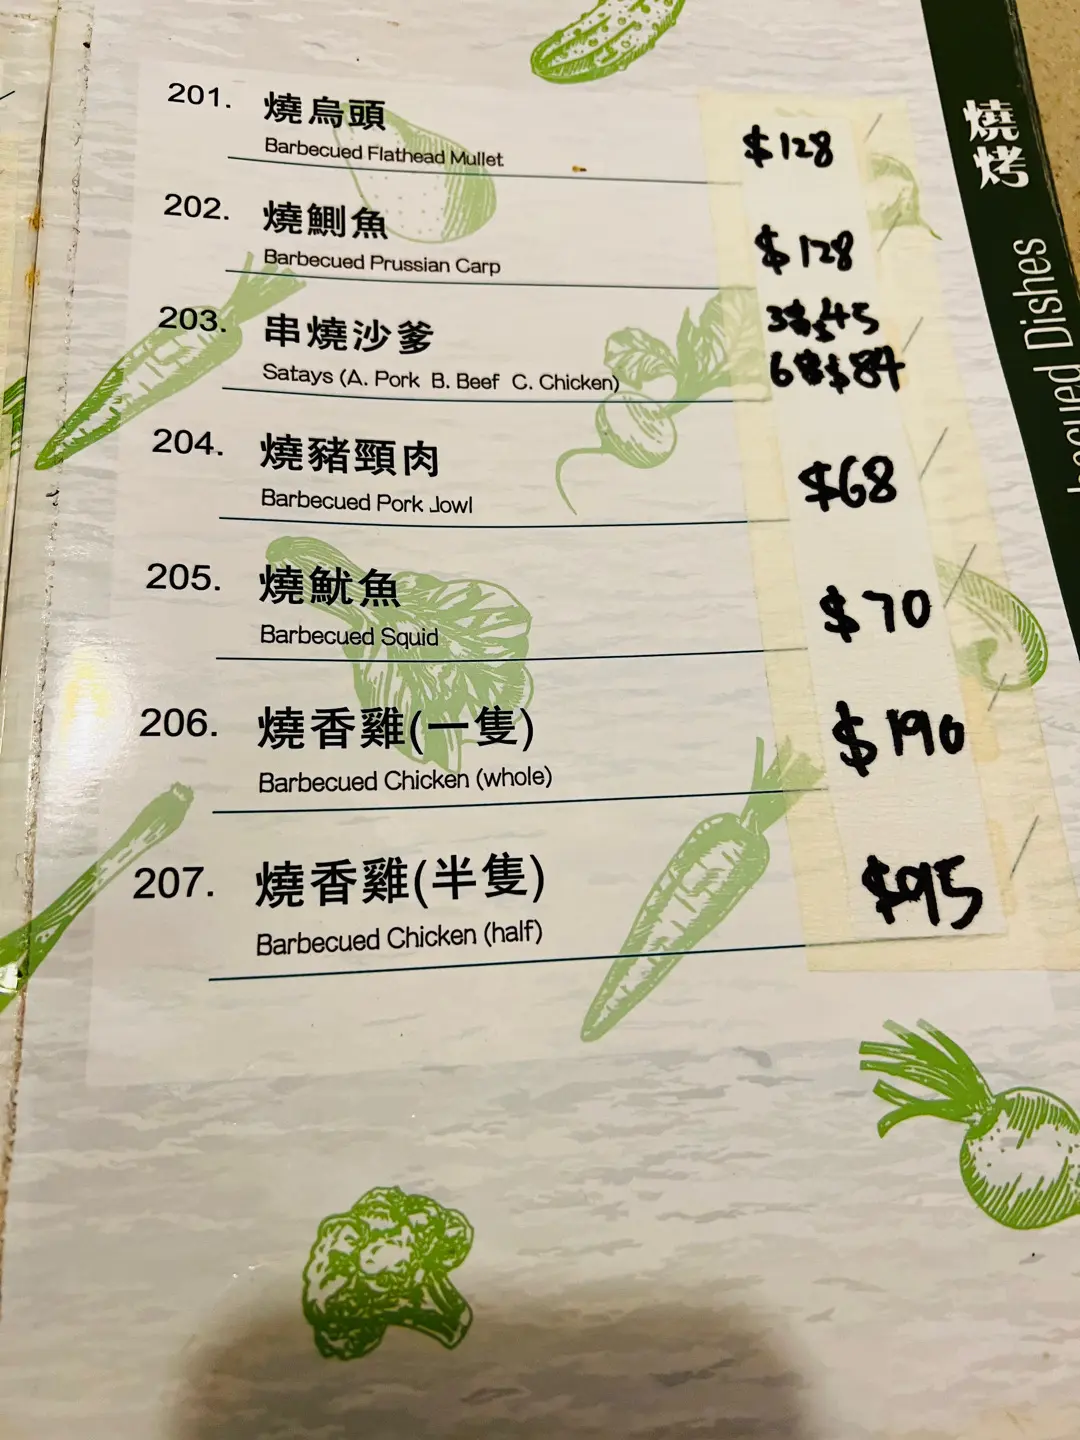 燒烤
Dishes
201. 燒烏頭 $128
Barbecued Flathead Mullet
202. 燒鰂魚 $128
Barbecued Prussian Carp
203. 串燒沙爹
Satays (A. Pork B. Beef C. Chicken)
204. 燒豬頸肉 $68
Barbecued Pork Jowl
205. 燒魷魚 $70
Barbecued Squid
206. 燒香雞(一隻) $190
Barbecued Chicken (whole)
207. 燒香雞(半隻) $95
Barbecued Chicken (half)